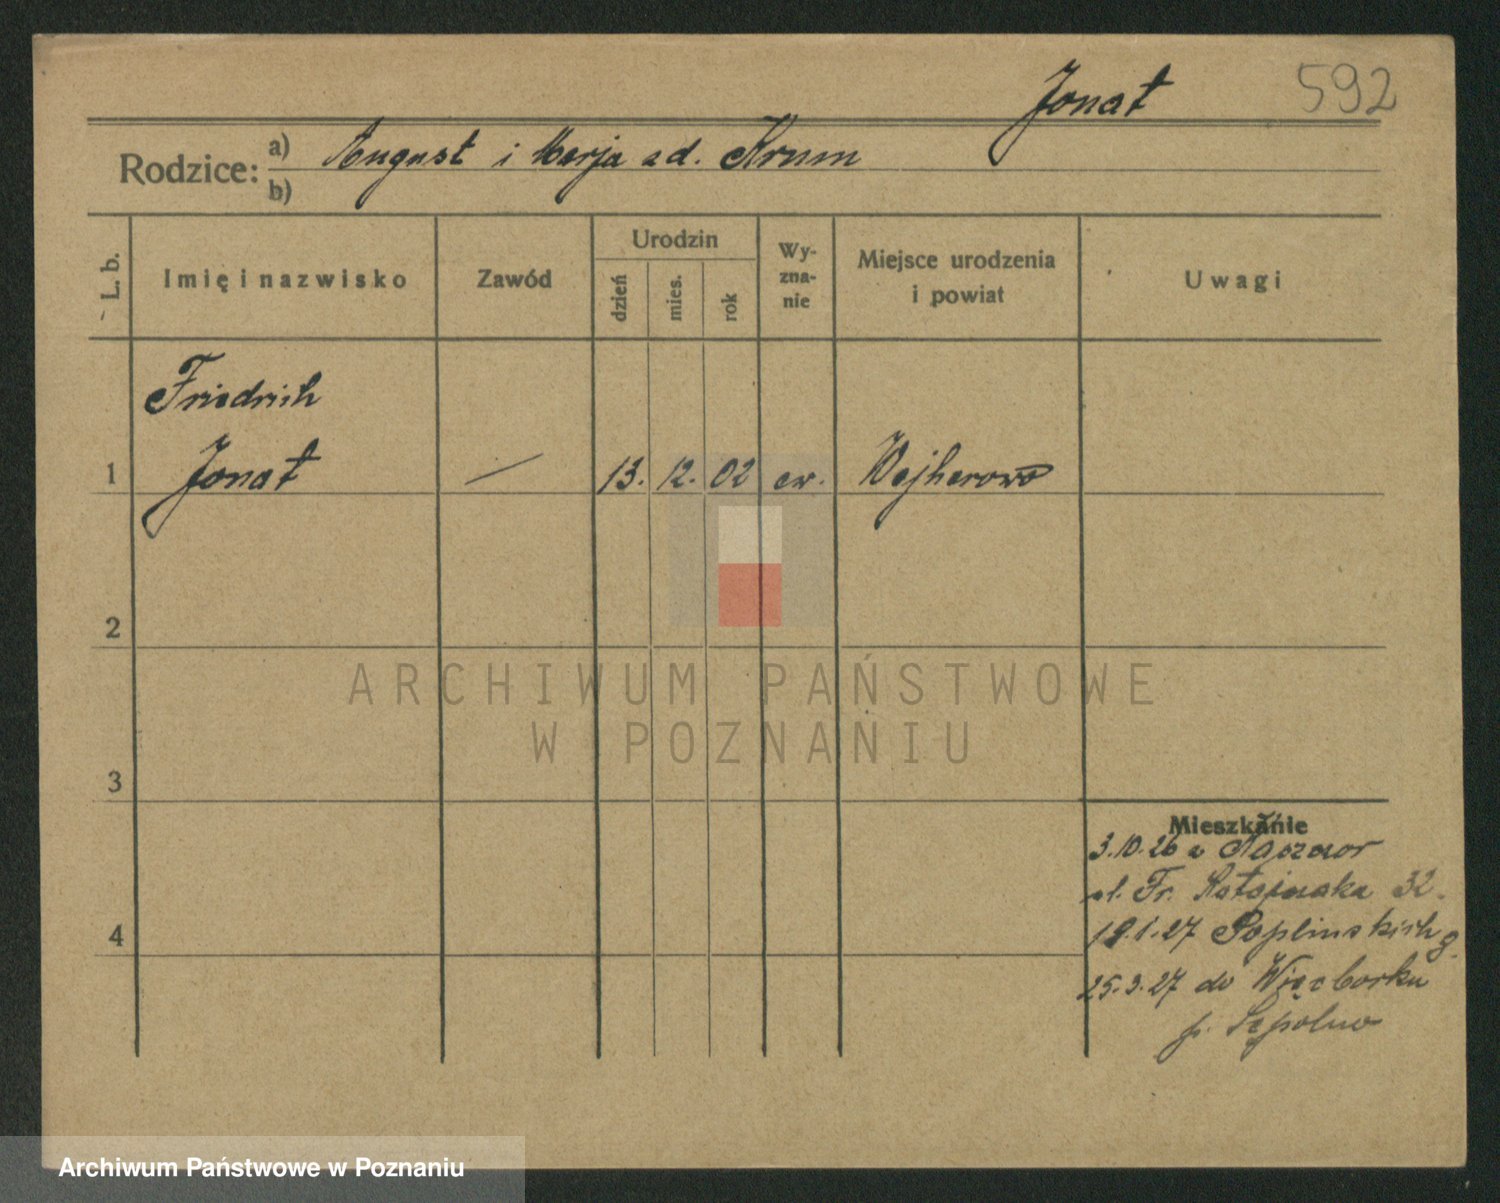 Jonat
592
Rodzice:
a) August i Marja ad. Krum
b)
L. b.
Imię i nazwisko
Zawód
Urodzin
dzień
mies.
rok
Wy-
zna-
nie
Miejsce urodzenia
i powiat
Uwagi
Friedrich
1 Jonat — 13. 12. 02 ew. Wejherowo
2
3
4
Mieszkanie
3.10.26 z
ul. Fr. Ratajczaka 32.
19.1.27 Poplinskich 9.
25.3.27 do Więcborku
p. Sępolno
ARCHIWUM PAŃSTWOWE
W POZNANIU
Archiwum Państwowe w Poznaniu